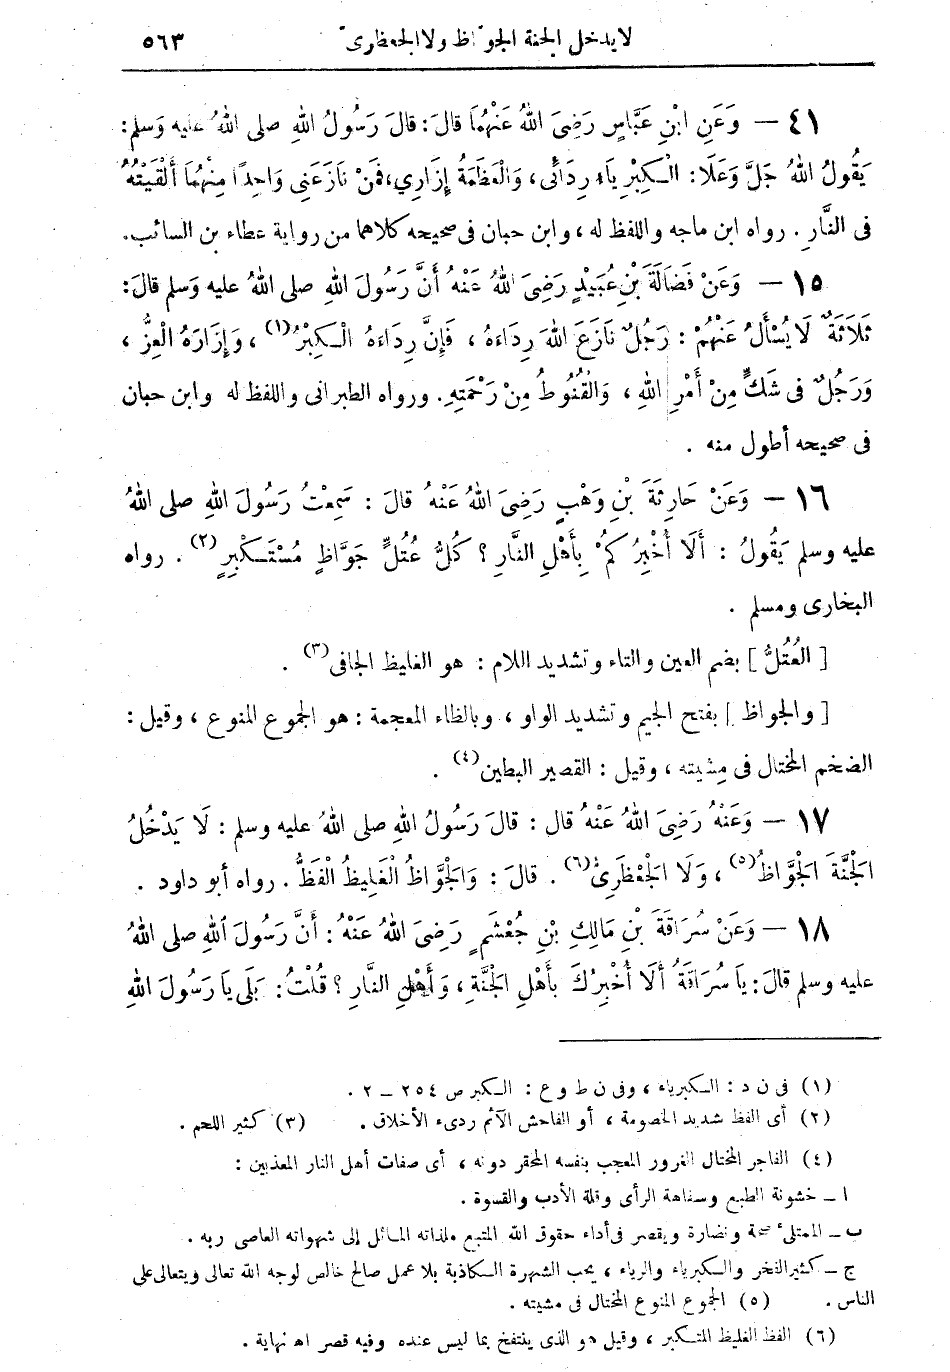 لا يدخل الجنة الجواظ ولا الجعظرى ٥٦٣
٤١ — وَعَنِ ابْنِ عَبَّاسٍ رَضِىَ اللهُ عَنْهُمَا قالَ: قالَ رَسُولُ اللهِ صلى اللهُ عليه وَسلم:
يَقُولُ اللهُ جَلَّ وَعَلَا: الْكِبْرِيَاءُ رِدَائى، وَالْعَظَمَةُ إِزَارِي، فَمَنْ نَازَعَنِى وَاحِدًا مِنْهُمَا أَلْقَيْتُهُ
فى النَّارِ. رواه ابن ماجه واللفظ له، وابن حبان فى صحيحه كلاهما من رواية عطاء بن السائب.
١٥ — وَعَنْ فَضَالَةَ بْنِ عُبَيْدٍ رَضِىَ اللهُ عَنْهُ أَنَّ رَسُولَ اللهِ صلى اللهُ عليه وَسلم قالَ:
ثَلَاثَةٌ لَا يُسْأَلُ عَنْهُمْ: رَجُلٌ نَازَعَ اللهَ رِدَاءَهُ، فَإِنَّ رِدَاءَهُ الْكِبْرُ(١)، وَإِزَارَهُ الْعِزُّ،
وَرَجُلٌ فى شَكٍّ مِنْ أَمْرِ اللهِ، وَالْقُنُوطُ مِنْ رَحْمَتِهِ. ورواه الطبرانى واللفظ له وابن حبان
فى صحيحه أطول منه.
١٦ — وَعَنْ حَارِثَةَ بْنِ وَهْبٍ رَضِىَ اللهُ عَنْهُ قالَ: سَمِعْتُ رَسُولَ اللهِ صلى اللهُ
عليه وسلم يَقُولُ: أَلَا أُخْبِرُكُمْ بِأَهْلِ النَّارِ؟ كُلُّ عُتُلٍّ جَوَّاظٍ مُسْتَكْبِرٍ(٢). رواه
البخارى ومسلم.
[العُتُلُّ] بضم العين والتاء وتشديد اللام: هو الغليظ الجافى(٣).
[والجواظ] بفتح الجيم وتشديد الواو، وبالظاء المعجمة: هو الجموع المنوع، وقيل:
الضخم المختال فى مِشيته، وقيل: القصير البطين(٤).
١٧ — وَعَنْهُ رَضِىَ اللهُ عَنْهُ قال: قالَ رَسُولُ اللهِ صلى اللهُ عليه وسلم: لَا يَدْخُلُ
الْجَنَّةَ الْجَوَّاظُ(٥)، وَلَا الْجَعْظَرِىُّ(٦). قالَ: وَالْجَوَّاظُ الْغَلِيظُ الْفَظُّ. رواه أبو داود.
١٨ — وَعَنْ سُرَاقَةَ بْنِ مَالِكِ بْنِ جُعْشَمٍ رَضِىَ اللهُ عَنْهُ: أَنَّ رَسُولَ اللهِ صلى اللهُ
عليه وسلم قالَ: يَا سُرَاقَةُ أَلَا أُخْبِرُكَ بِأَهْلِ الْجَنَّةِ، وَأَهْلِ النَّارِ؟ قُلْتُ: بَلَى يَا رَسُولَ اللهِ
(١) فى ن د: الكبرياء، وفى ن ط و ع: الكبر ص ٢٥٤ — ٢.
(٢) أى الفظ شديد الخصومة، أو الفاحش الآثم ردىء الأخلاق. (٣) كثير اللحم.
(٤) الفاجر المختال الغرور المعجب بنفسه المحقر دونه، أى صفات أهل النار المعذبين:
ا — خشونة الطبع وسفاهة الرأى وقلة الأدب والقسوة.
ب — الممتلىء صحة ونضارة ويقصر فى أداء حقوق الله المتبع ملذاته المائل إلى شهواته العاصى ربه.
ج — كثير الفخر والكبرياء والرياء، يحب الشهرة الكاذبة بلا عمل صالح خالص لوجه الله تعالى ويتعالى على
الناس. (٥) الجموع المنوع المختال فى مشيته.
(٦) الفظ الغليظ المتكبر، وقيل هو الذى ينتفخ بما ليس عنده وفيه قصر اه نهاية.